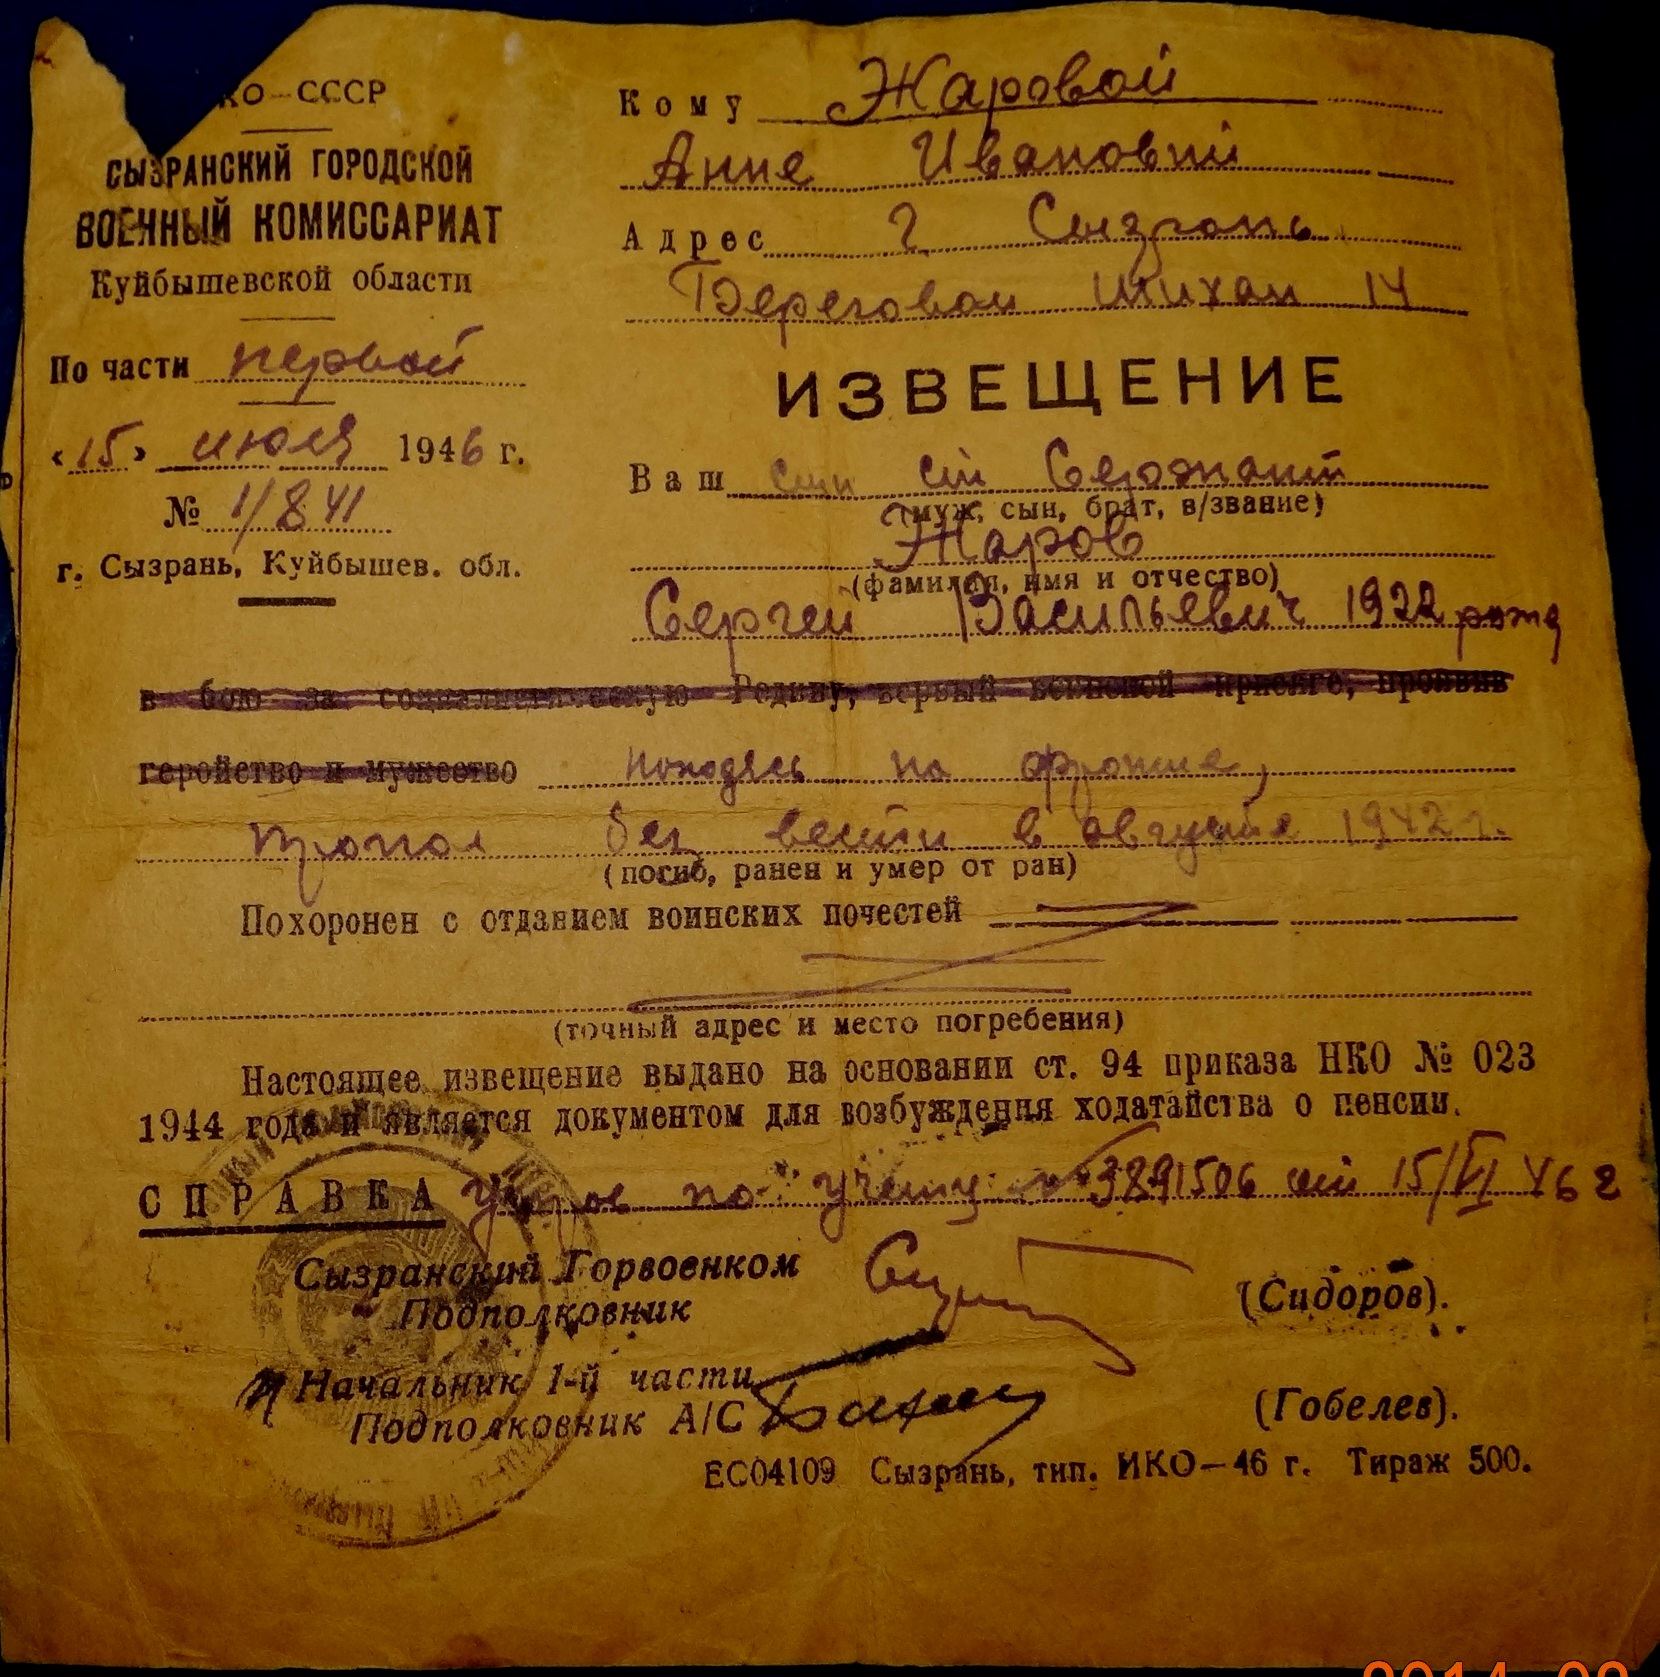 КО-СССР
СЫЗРАНСКИЙ ГОРОДСКОЙ
ВОЕННЫЙ КОМИССАРИАТ
Куйбышевской области
По части первой
«15» июля 1946 г.
№ 1/841
г. Сызрань, Куйбышев. обл.
Кому Жаровой
Анне Ивановны
Адрес г Сызрань
Береговой Шихан 14
ИЗВЕЩЕНИЕ
Ваш сын ст Сержант
(муж, сын, брат, в/звание)
Жаров
(фамилия, имя и отчество)
Сергей Васильевич 1922 рожд
в бою за социалистическую Родину, верный воинской присяге, проявив
геройство и мужество находясь на фронте,
пропал без вести в августе 1942 г.
(погиб, ранен и умер от ран)
Похоронен с отданием воинских почестей
(точный адрес и место погребения)
Настоящее извещение выдано на основании ст. 94 приказа НКО № 023
1944 года и является документом для возбуждения ходатайства о пенсии.
СПРАВКА по учету 3891506 от 15/VI 46 г
Сызранский Горвоенком (Сидоров).
Подполковник
Начальник 1-й части
Подполковник А/С (Гобелев).
ЕС04109 Сызрань, тип. ИКО-46 г. Тираж 500.